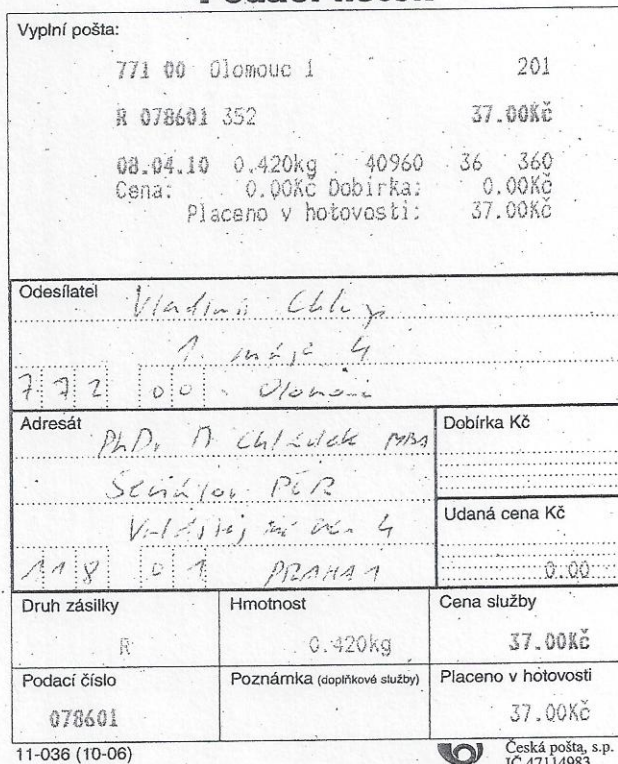 Vyplní pošta:
771 00 Olomouc 1 201
R 078601 352 37.00Kč
08.04.10 0.420kg 40960 36 360
Cena: 0.00Kč Dobírka: 0.00Kč
Placeno v hotovosti: 37.00Kč
Odesílatel
Vladimír
1. máje 4
772 00 Olomouc
Adresát
PhD. Chládek MBA
PČR
4
118 01 PRAHA 1
Dobírka Kč
Udaná cena Kč
0.00
Druh zásilky Hmotnost Cena služby
R 0.420kg 37.00Kč
Podací číslo Poznámka (doplňkové služby) Placeno v hotovosti
078601 37.00Kč
11-036 (10-06) Česká pošta, s.p.
IČ 47114983